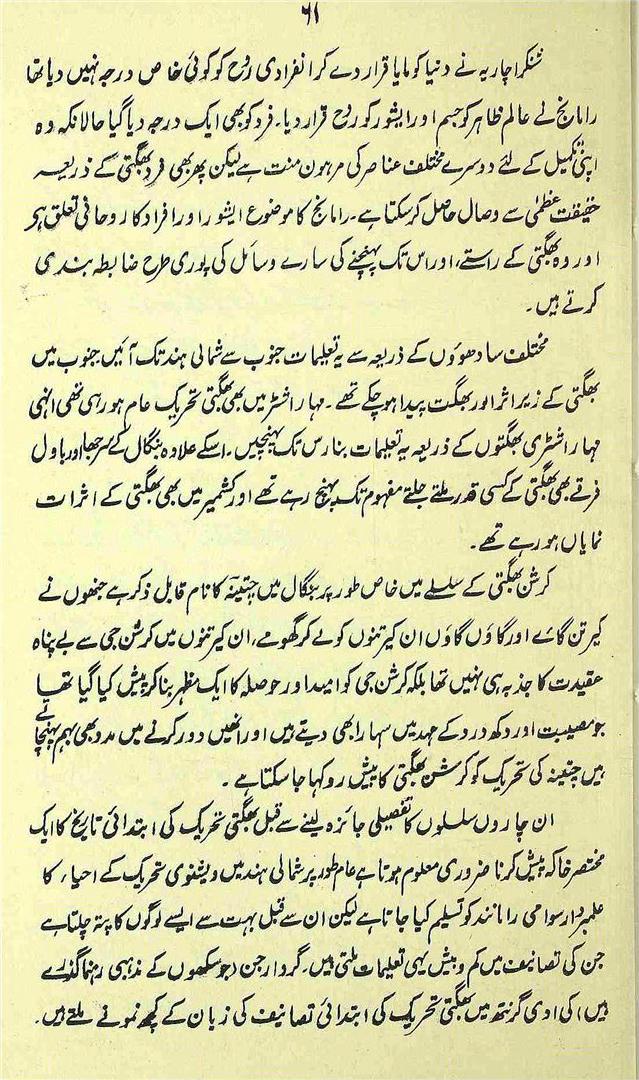 ۶۱
شنکراچاریہ نے دنیا کو مایا قرار دے کر انفرادی روح کو کوئی خاص درجہ نہیں دیا تھا
رامانج نے عالم ظاہر کو جسم اور ایشور کو روح قرار دیا۔ فرد کو بھی ایک درجہ دیا گیا حالانکہ وہ
اپنی تکمیل کے لئے دوسرے مختلف عناصر کی مرہون منت ہے لیکن پھر بھی فرد بھگتی کے ذریعہ
حقیقت عظمٰی سے وصال حاصل کر سکتا ہے۔ رامانج کا موضوع ایشور اور افراد کا روحانی تعلق ہے
اور وہ بھگتی کے راستے، اور اس تک پہنچنے کی سارے وسائل کی پوری طرح ضابطہ بندی
کرتے ہیں۔
مختلف سادھوؤں کے ذریعہ سے یہ تعلیمات جنوب سے شمالی ہند تک آئیں جنوب میں
بھگتی کے زیر اثر اور بھگت پیدا ہو چکے تھے۔ مہاراشٹر میں بھی بھگتی تحریک عام ہو رہی تھی انہی
مہاراشٹری بھگتوں کے ذریعہ یہ تعلیمات بنارس تک پہنچیں۔ اسکے علاوہ بنگال کے سرجھا اور باول
فرقے بھی بھگتی کے کسی قدر ملتے جلتے مفہوم تک پہنچ رہے تھے اور کشمیر میں بھی بھگتی کے اثرات
نمایاں ہو رہے تھے۔
کرشن بھگتی کے سلسلے میں خاص طور پر بنگال میں چتینہ کا نام قابل ذکر ہے جنھوں نے
کیرتن گائے اور گاؤں گاؤں ان کیرتنوں کو لے کر گھومے، ان کیرتنوں میں کرشن جی سے بے پناہ
عقیدت کا جذبہ ہی نہیں تھا بلکہ کرشن جی کو امید اور حوصلہ کا ایک مظہر بنا کر پیش کیا گیا تھا
جو مصیبت اور دکھ درد کے عہد میں سہارا بھی دیتے ہیں اور انھیں دور کرنے میں مدد بھی بہم پہنچاتے
ہیں چتینہ کی تحریک کو کرشن بھگتی کا پیش رو کہا جا سکتا ہے۔
ان چاروں سلسلوں کا تفصیلی جائزہ لینے سے قبل بھگتی تحریک کی ابتدائی تاریخ کا ایک
مختصر خاکہ پیش کرنا ضروری معلوم ہوتا ہے عام طور پر شمالی ہند میں ویشنوی تحریک کے احیاء کا
علمبردار سوامی رامانند کو تسلیم کیا جاتا ہے لیکن ان سے قبل بہت سے ایسے لوگوں کا پتہ چلتا ہے
جن کی تصانیف میں کم و بیش یہی تعلیمات ملتی ہیں۔ گردارجن (جو سکھوں کے مذہبی رہنما گذرے
ہیں) کی ادی گرنتھ میں بھگتی تحریک کی ابتدائی تصانیف کی زبان کے کچھ نمونے ملتے ہیں۔